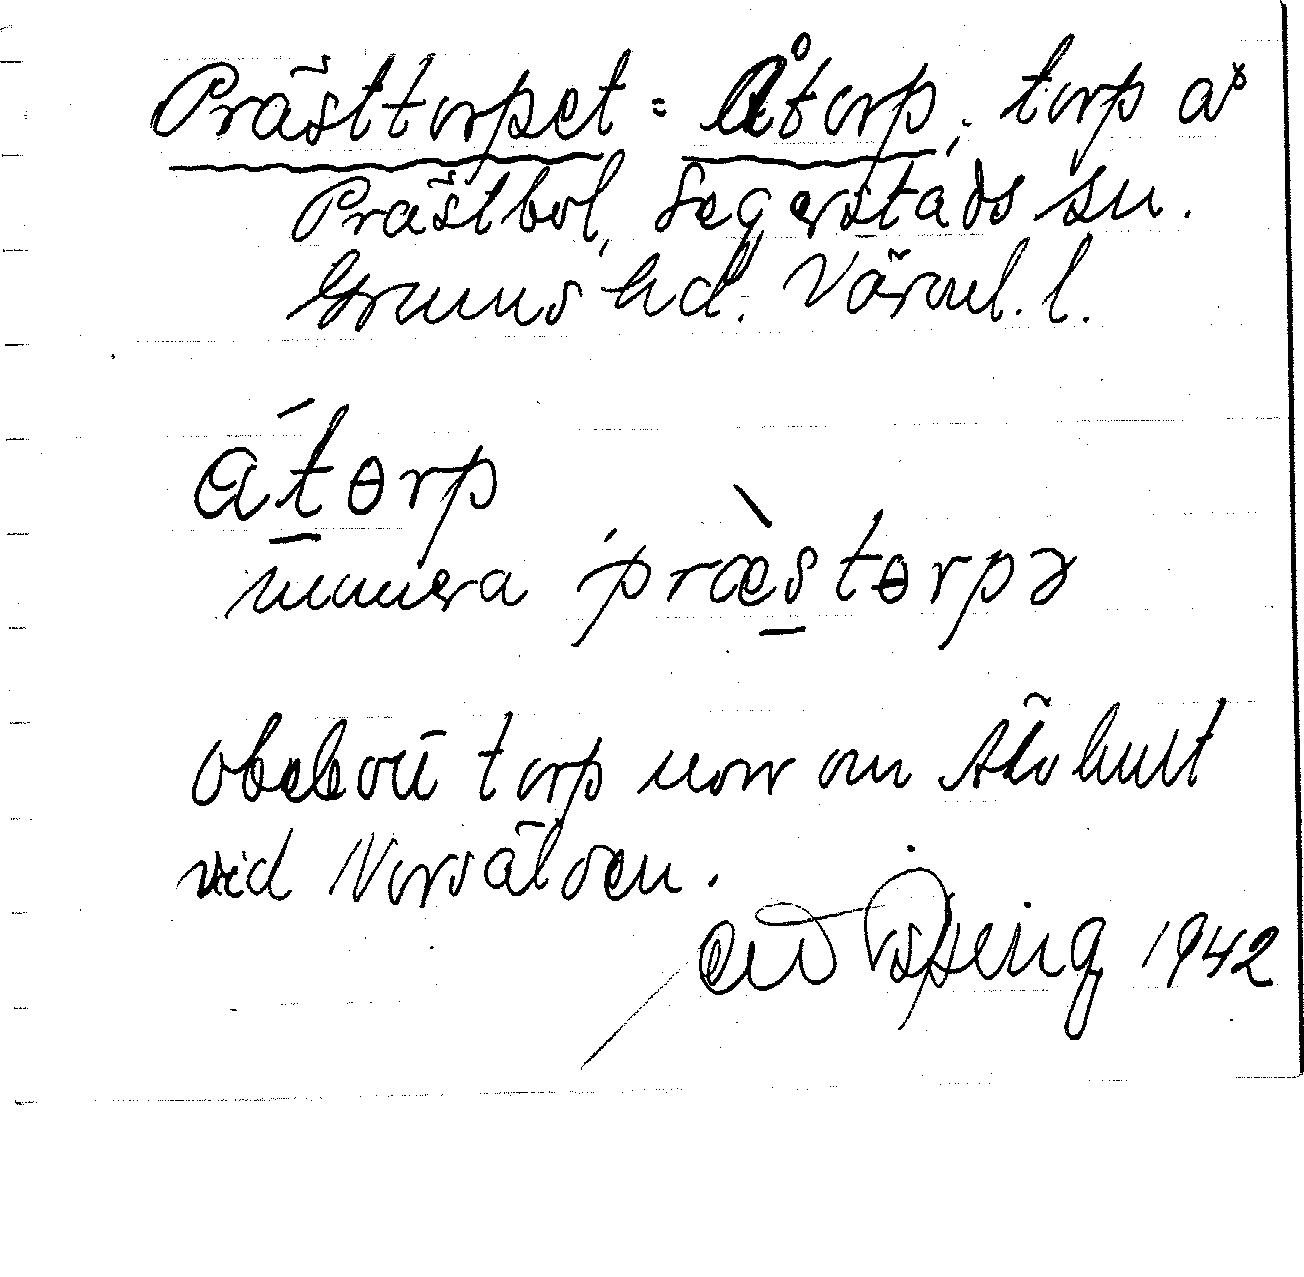 Prästtorpet = Åtorp, torp å
Prästbol, Segerstads sn.
Grums hd. Värml. l.
átɵrp
numera præ̀stɵrpə
obebott torp norr om Älvhult
vid Norsälven.
1942